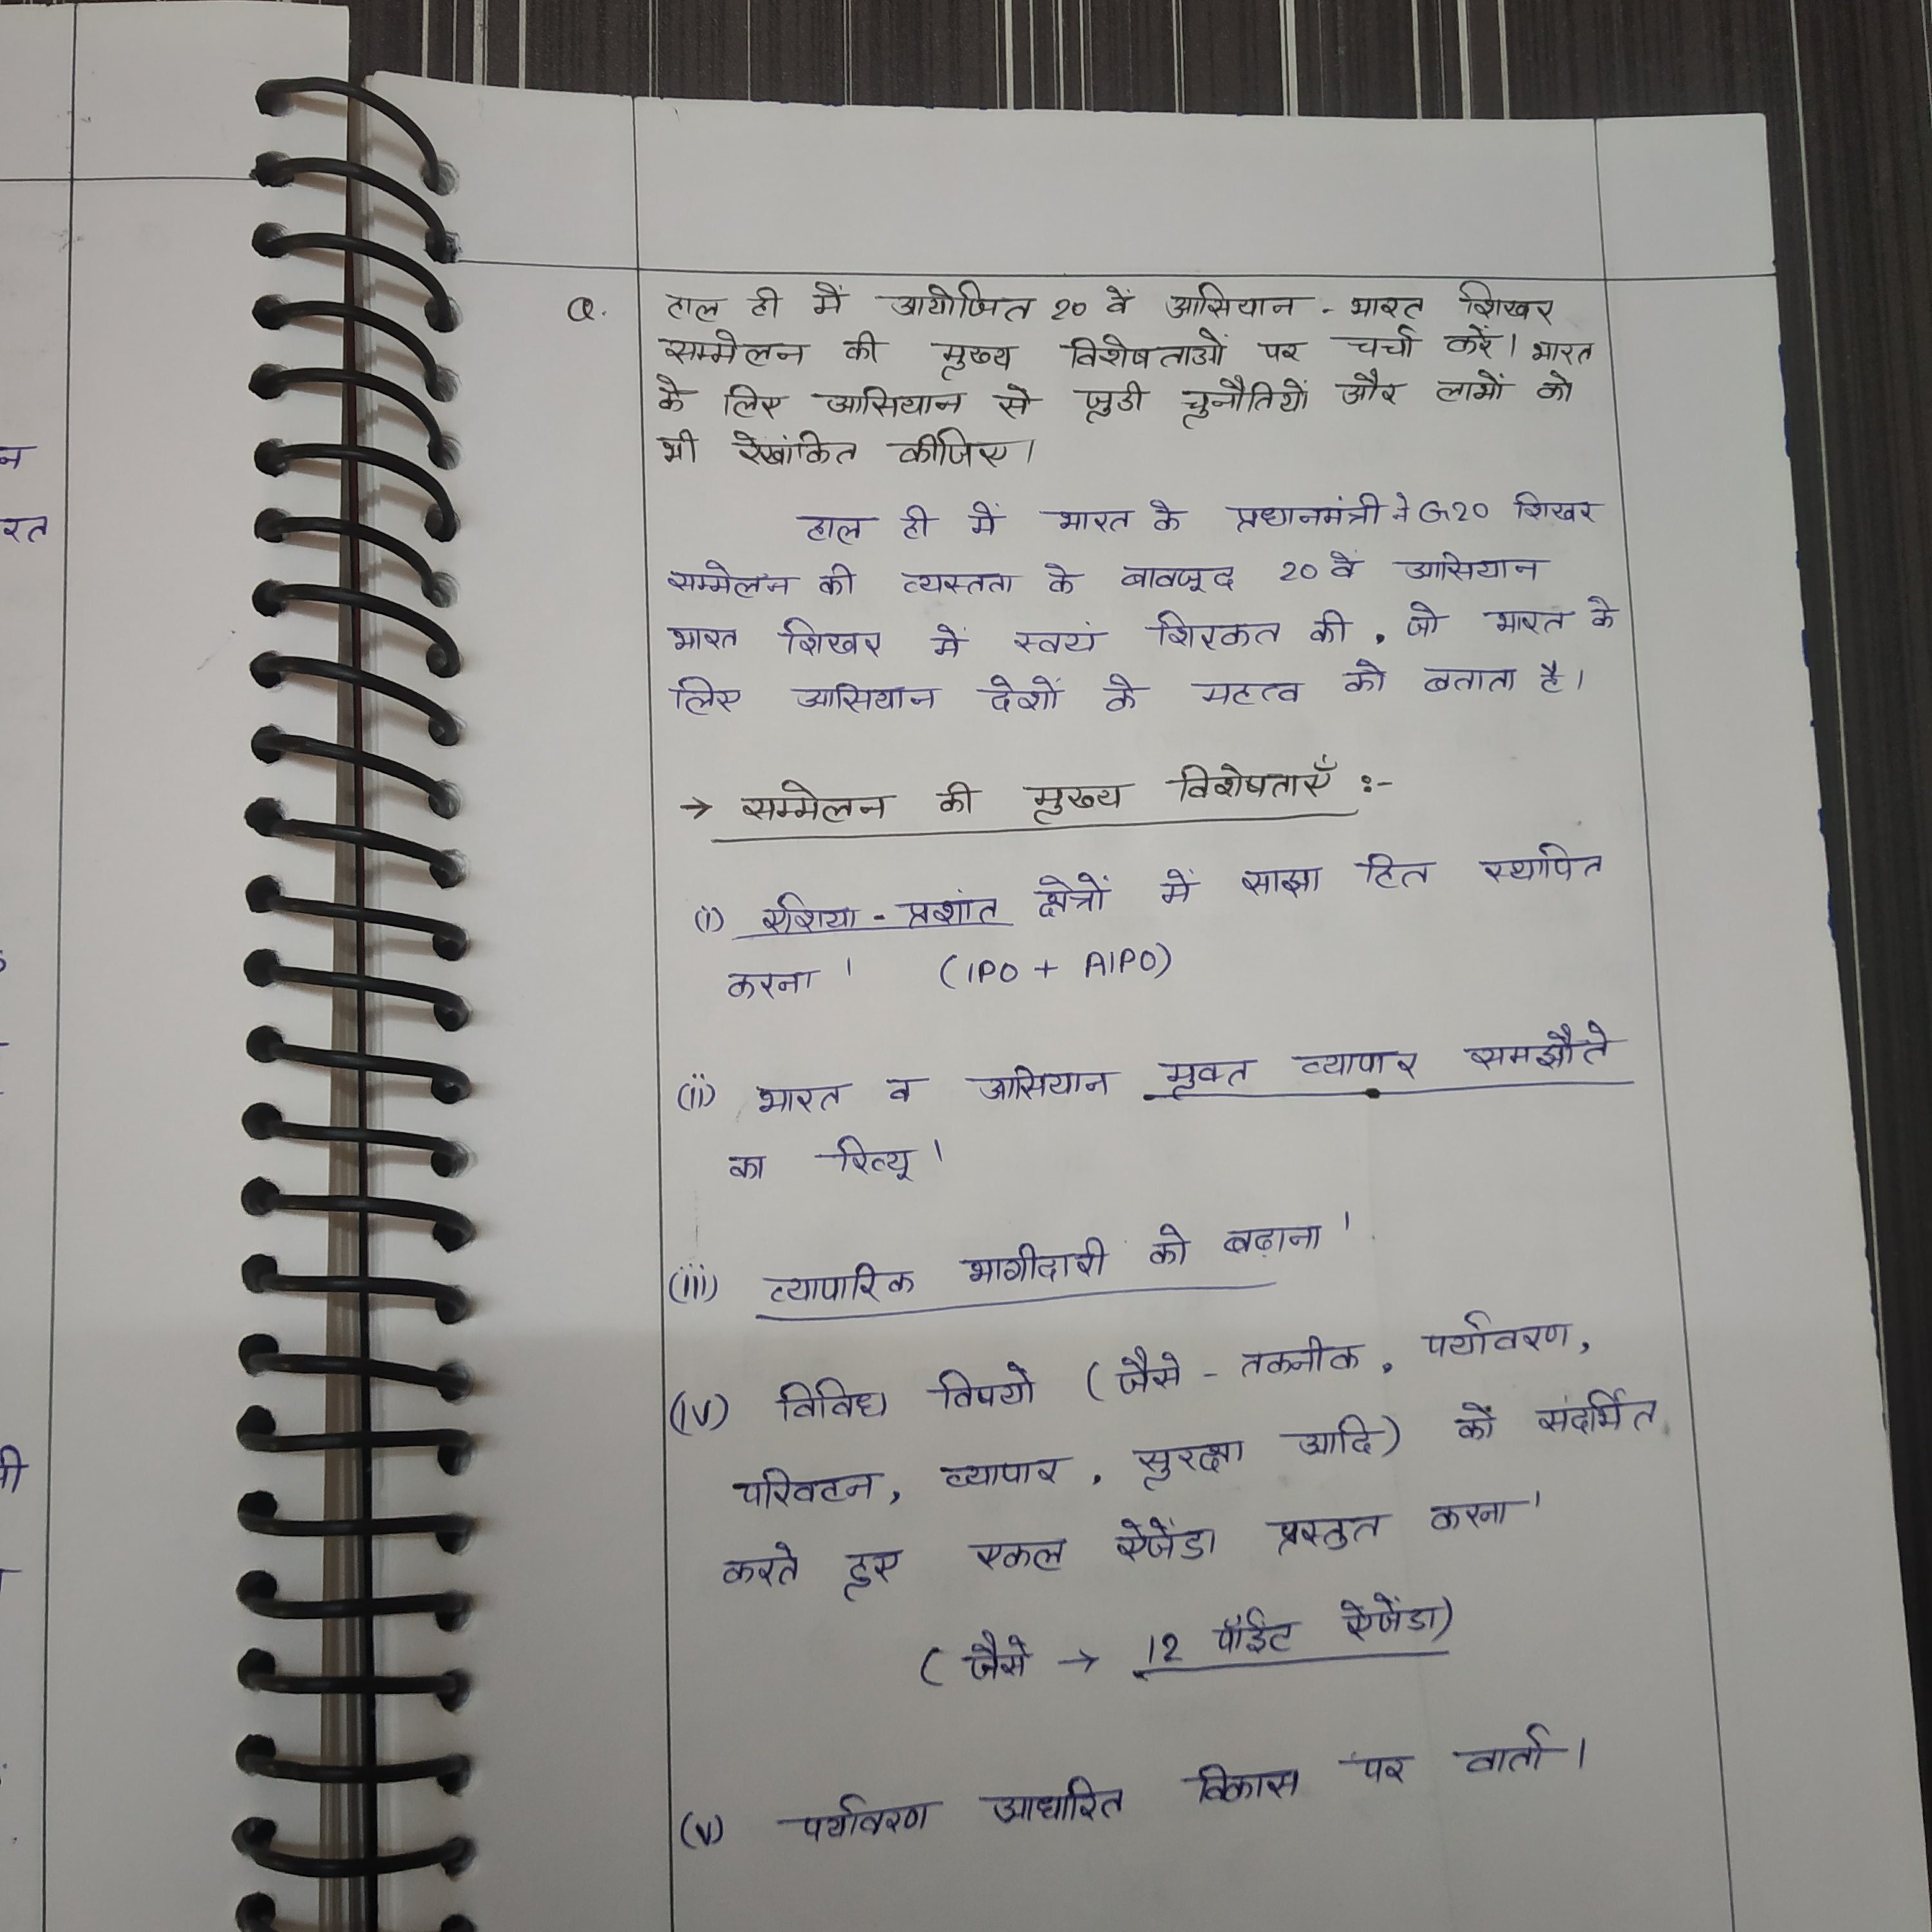 Q. हाल ही में आयोजित 20 वें आसियान - भारत शिखर
सम्मेलन की मुख्य विशेषताओं पर चर्चा करें। भारत
के लिए आसियान से जुडी चुनौतियों और लाभों को
भी रेखांकित कीजिए।
हाल ही में भारत के प्रधानमंत्री ने G20 शिखर
सम्मेलन की व्यस्तता के बावजूद 20 वें आसियान
भारत शिखर में स्वयं शिरकत की, जो भारत के
लिए आसियान देशों के महत्व को बताता है।
→ सम्मेलन की मुख्य विशेषताएँ :-
(i) एशिया - प्रशांत क्षेत्रों में साझा हित स्थापित
करना। (IPO + AIPO)
(ii) भारत व आसियान मुक्त व्यापार समझौते
का रिव्यू।
(iii) व्यापारिक भागीदारी को बढ़ाना।
(iv) विविध विषयों (जैसे - तकनीक, पर्यावरण,
परिवहन, व्यापार, सुरक्षा आदि) को संदर्भित
करते हुए एकल ऐजेंडा प्रस्तुत करना।
(जैसे → 12 पॉईंट ऐजेंडा)
(v) पर्यावरण आधारित विकास पर वार्ता।
न
रत